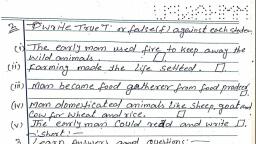 2 Write True 'T' or false(f) against each statem
(i) The early man used fire to keep away the
wild animals. □
(ii) Farming made the life settled. □
(iii) Man became food gatherer from food producer □
(iv) Man domesticated animals like sheep, goat and
cow for wheat and rice. □
(v) The early man could read and write □
'short':—
3 Learn Answers and questions:—